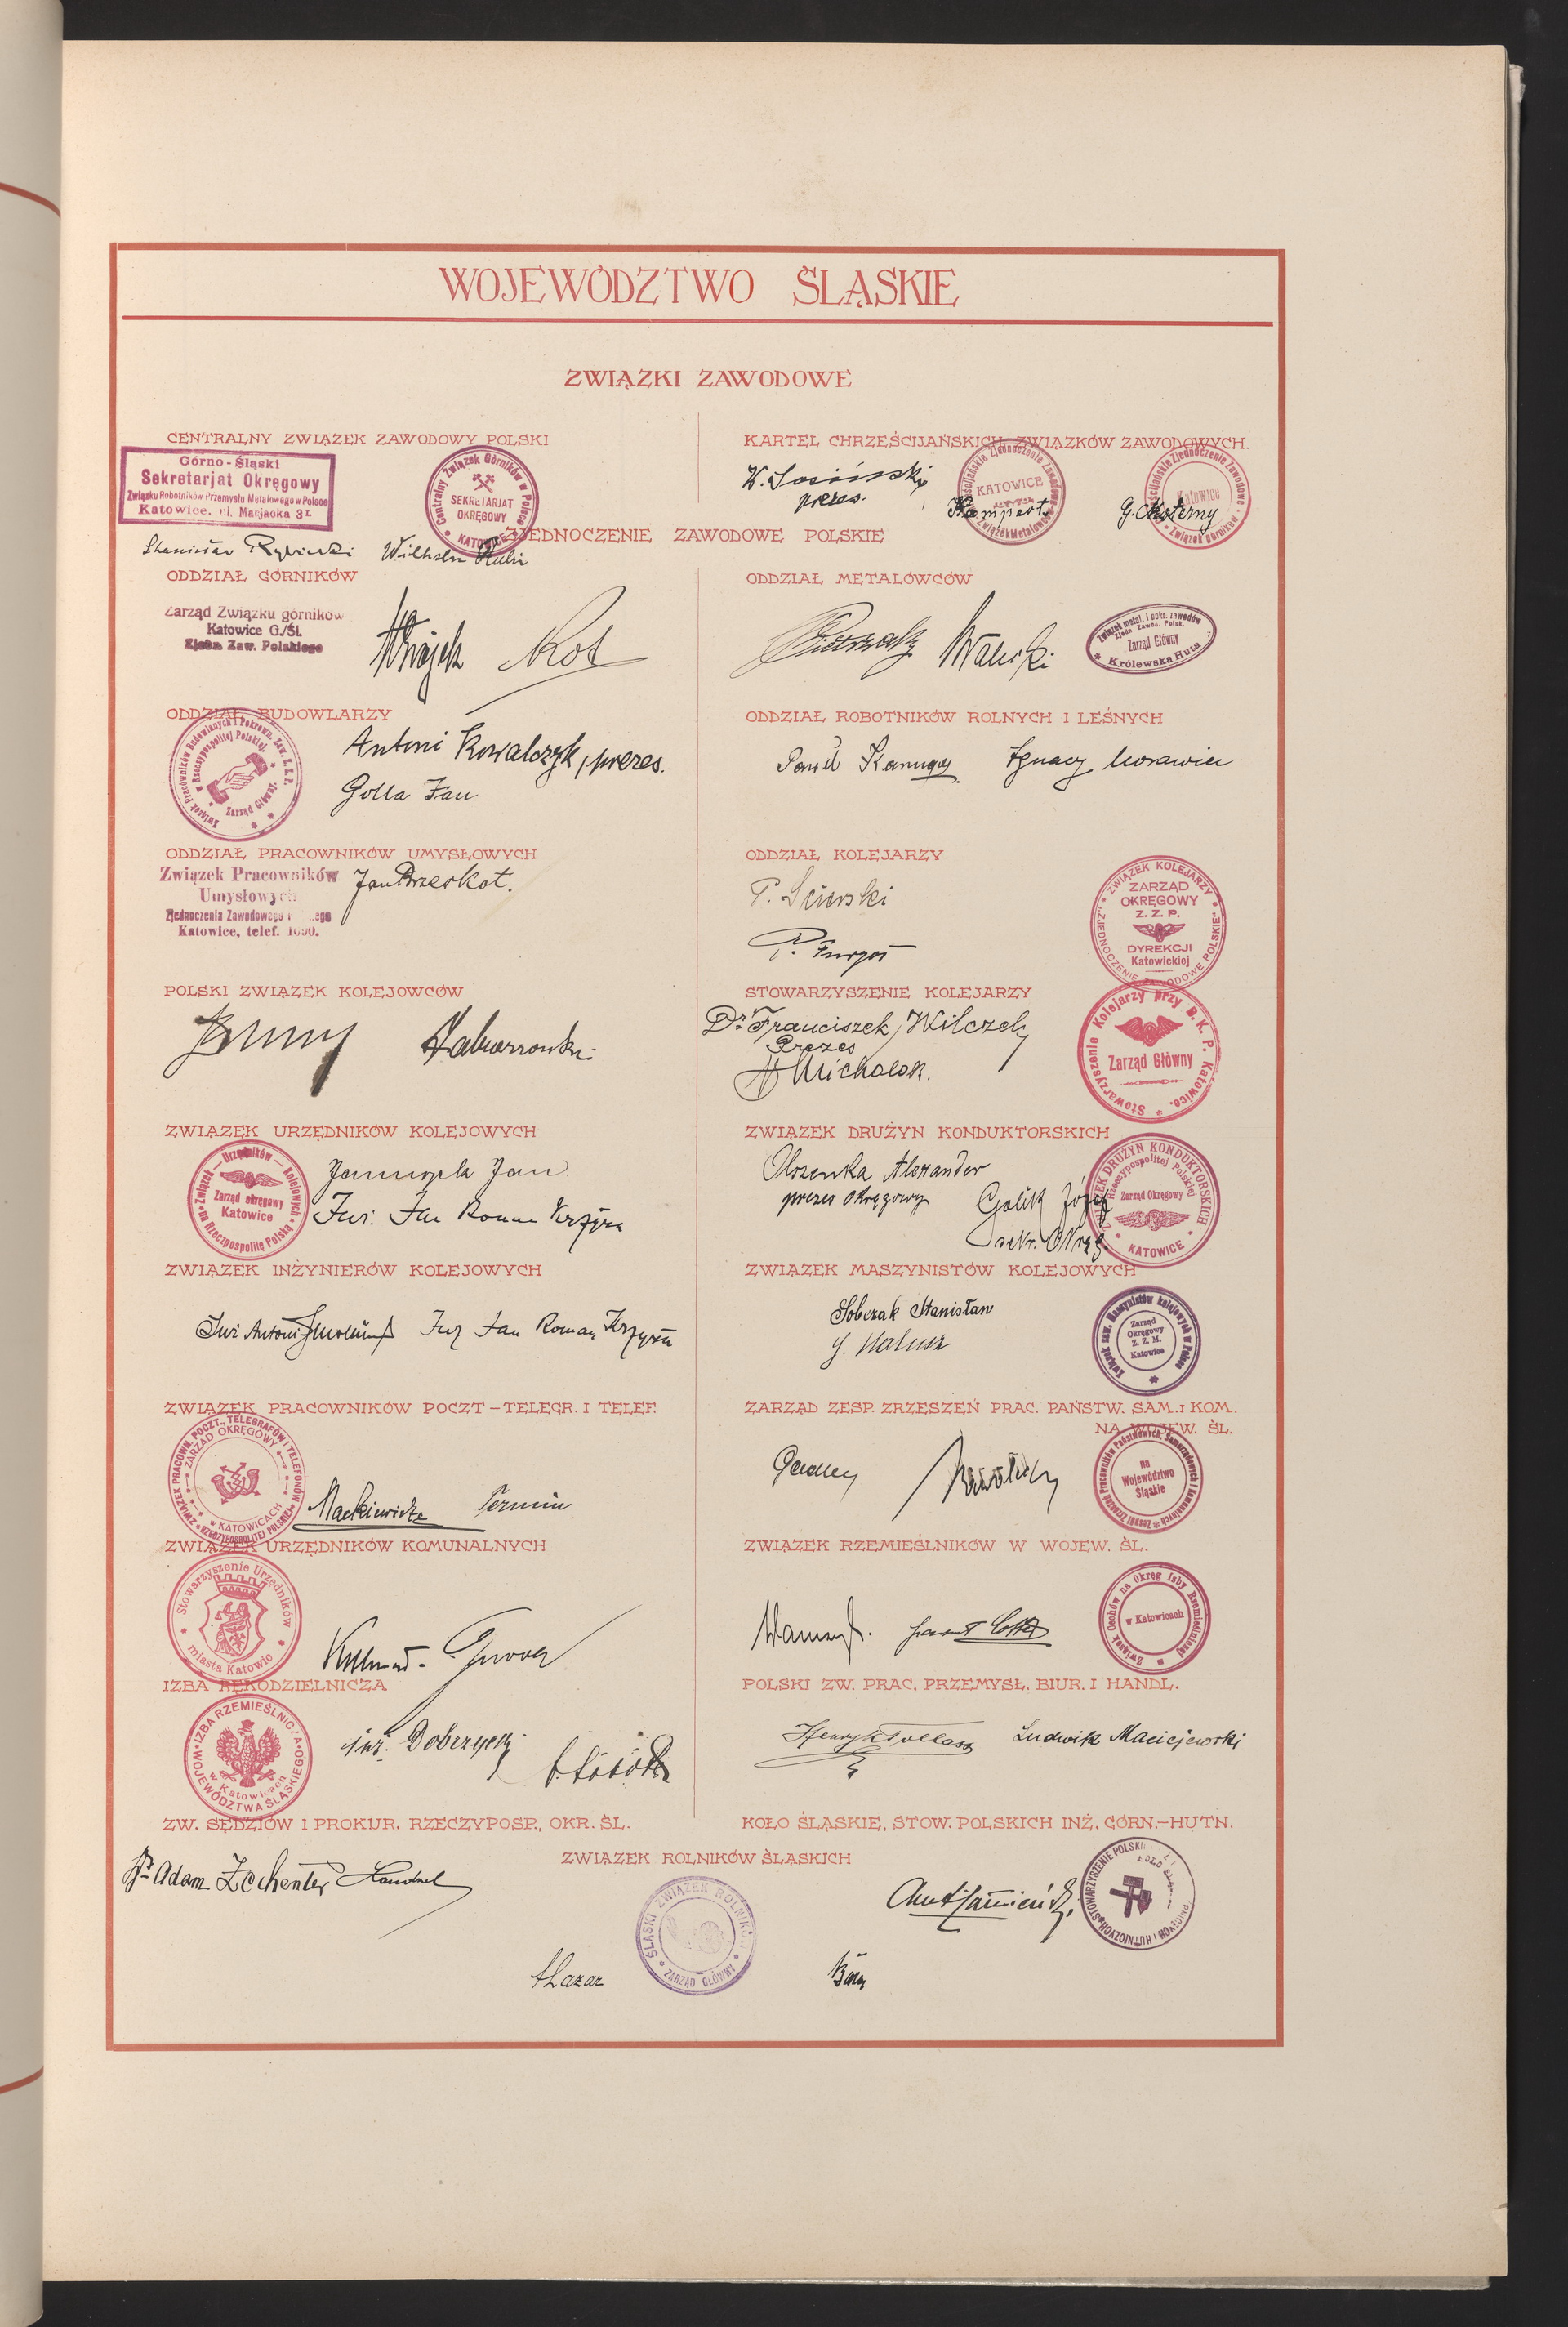 WOJEWÓDZTWO ŚLĄSKIE
ZWIĄZKI ZAWODOWE
CENTRALNY ZWIĄZEK ZAWODOWY POLSKI
Górno-Śląski
Sekretarjat Okręgowy
Związku Robotników Przemysłu Metalowego w Polsce
Katowice, ul. Marjacka 3
Centralny Związek Górników w Polsce
SEKRETARJAT
OKRĘGOWY
KATOWICE
Stanisław Rybicki Wilhelm Rubin
KARTEL CHRZEŚCIJAŃSKICH ZWIĄZKÓW ZAWODOWYCH.
prezes.
KATOWICE
Związek Metalowców
Kampert
Katowice
Związek Górników
G. Moterny
ZJEDNOCZENIE ZAWODOWE POLSKIE
ODDZIAŁ GÓRNIKÓW
Zarząd Związku górników
Katowice G./Śl.
Zjedn. Zaw. Polskiego
Kot
ODDZIAŁ METALÓWCÓW
Związek metal. i pokr. zawodów
Zjedn. Zawod. Polsk.
Zarząd Główny
Królewska Huta
ODDZIAŁ BUDOWLARZY
Związek Pracowników Budowlanych i Pokrewn. Zaw. Z.Z.P.
w Rzeczypospolitej Polskiej.
Zarząd Główny.
Antoni Kowalczyk, prezes.
Golla Jan
ODDZIAŁ ROBOTNIKÓW ROLNYCH I LEŚNYCH
Paweł Ignacy Morawiec
ODDZIAŁ PRACOWNIKÓW UMYSŁOWYCH
Związek Pracowników
Umysłowych
Zjednoczenia Zawodowego
Katowice, telef.
Jan Brzeskot.
ODDZIAŁ KOLEJARZY
P. Ścierski
P. Furgoł
ZWIĄZEK KOLEJARZY
ZARZĄD
OKRĘGOWY
Z. Z. P.
DYREKCJI
Katowickiej
"ZJEDNOCZENIE ZAWODOWE POLSKIE"
POLSKI ZWIĄZEK KOLEJOWCÓW
STOWARZYSZENIE KOLEJARZY
Dr Franciszek Wilczek
Prezes
Michalak.
Stowarzyszenie Kolejarzy przy D. K. P. Katowice.
Zarząd Główny
ZWIĄZEK URZĘDNIKÓW KOLEJOWYCH
Związek Urzędników Kolejowych
Zarząd okręgowy
Katowice
na Rzeczpospolitę Polską
Jan
Inż. Jan Roman Krzyża
ZWIĄZEK DRUŻYN KONDUKTORSKICH
prezes Okręgowy
Golik Józef
sekr. Okręg.
ZWIĄZEK DRUŻYN KONDUKTORSKICH
Rzeczypospolitej Polskiej
Zarząd Okręgowy
KATOWICE
ZWIĄZEK INŻYNIERÓW KOLEJOWYCH
Inż Antoni Inż Jan Roman
ZWIĄZEK MASZYNISTÓW KOLEJOWYCH
Sobczak Stanisław
Związek zaw. Maszynistów kolejowych w Polsce
Zarząd
Okręgowy
Z. Z. M.
Katowice
ZWIĄZEK PRACOWNIKÓW POCZT-TELEGR. I TELEF.
ZWIĄZEK PRACOWN. POCZT., TELEGRAFÓW I TELEFONÓW
ZARZĄD OKRĘGOWY
w KATOWICACH
RZECZYPOSPOLITEJ POLSKIEJ
Mackiewicz
ZARZĄD ZESP. ZRZESZEŃ PRAC. PAŃSTW. SAM. I KOM.
NA WOJEW. ŚL.
Zespół Zrzeszeń Pracowników Państwowych, Samorządowych i Komunalnych
na
Województwo
Śląskie
ZWIĄZEK URZĘDNIKÓW KOMUNALNYCH
Stowarzyszenie Urzędników
miasta Katowic
ZWIĄZEK RZEMIEŚLNIKÓW W WOJEW. ŚL.
Związek Cechów na Okręg Izby Rzemieślniczej
w Katowicach
IZBA RĘKODZIELNICZA
IZBA RZEMIEŚLNICZA
w Katowicach
WOJEWÓDZTWA ŚLĄSKIEGO
inż. Dobrzycki
POLSKI ZW. PRAC. PRZEMYSŁ. BIUR. I HANDL.
Ludwik Maciejewski
ZW. SĘDZIÓW I PROKUR. RZECZYPOSP., OKR. ŚL.
Dr Adam Zechenter
KOŁO ŚLĄSKIE, STOW. POLSKICH INŻ. GÓRN.-HUTN.
STOWARZYSZENIE POLSKICH
ZWIĄZEK ROLNIKÓW ŚLĄSKICH
ŚLĄSKI ZWIĄZEK ROLNIKÓW
ZARZĄD GŁÓWNY